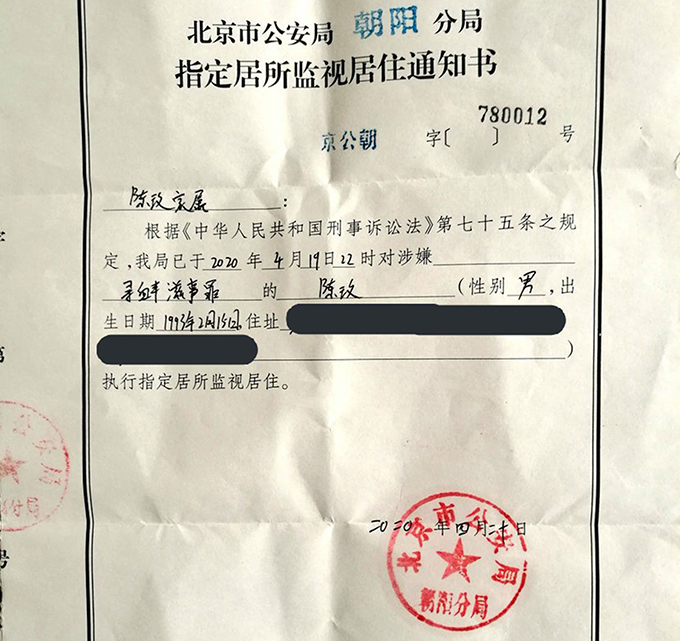 北京市公安局 朝阳 分局
指定居所监视居住通知书
780012
京公朝 字〔 〕 号
陈玫家属：
根据《中华人民共和国刑事诉讼法》第七十五条之规
定，我局已于2020年4月19日22时对涉嫌
寻衅滋事罪的陈玫（性别男，出
生日期1993年2月15日，住址
）
执行指定居所监视居住。
2020年四月二十日
北京市公安局
朝阳分局
公安局
分局
第
号